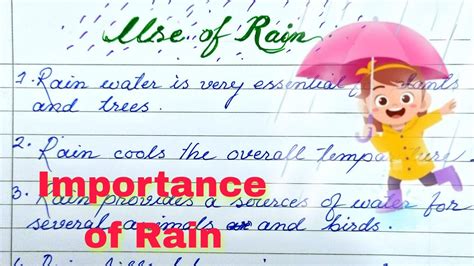 Use of Rain
1. Rain water is very essential for plants
and trees.
2. Rain cools the overall temperature.
3. Rain provides a sources of water for
several animals and birds.
Importance
of Rain